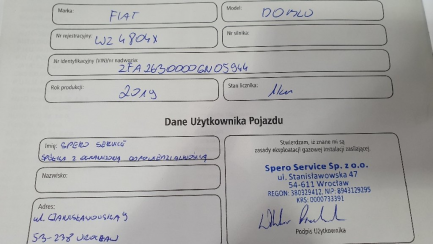 Marka: FIAT
Model: DOBLO
Nr rejestracyjny: WZ 4804X
Nr silnika:
Nr identyfikacyjny (VIN)/nr nadwozia
ZFA2630000
Rok produkcji: 2019
Stan licznika: 1km
Dane Użytkownika Pojazdu
Imię: SPERO SERVICE
SPÓŁKA Z OGRANICZONĄ ODPOWIEDZIALNOŚCIĄ
Nazwisko:
Adres:
ul. STANISŁAWOWSKA
WROCŁAW
Stwierdzam, iż znane mi są
zasady eksploatacji gazowej instalacji zasilającej
Spero Service Sp. z o.o.
ul. Stanisławowska 47
54-611 Wrocław
REGON: 380329412, NIP: 8943129395
KRS: 0000733391
Podpis Użytkownika